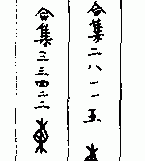 合集二八一一五
合集三三四二三